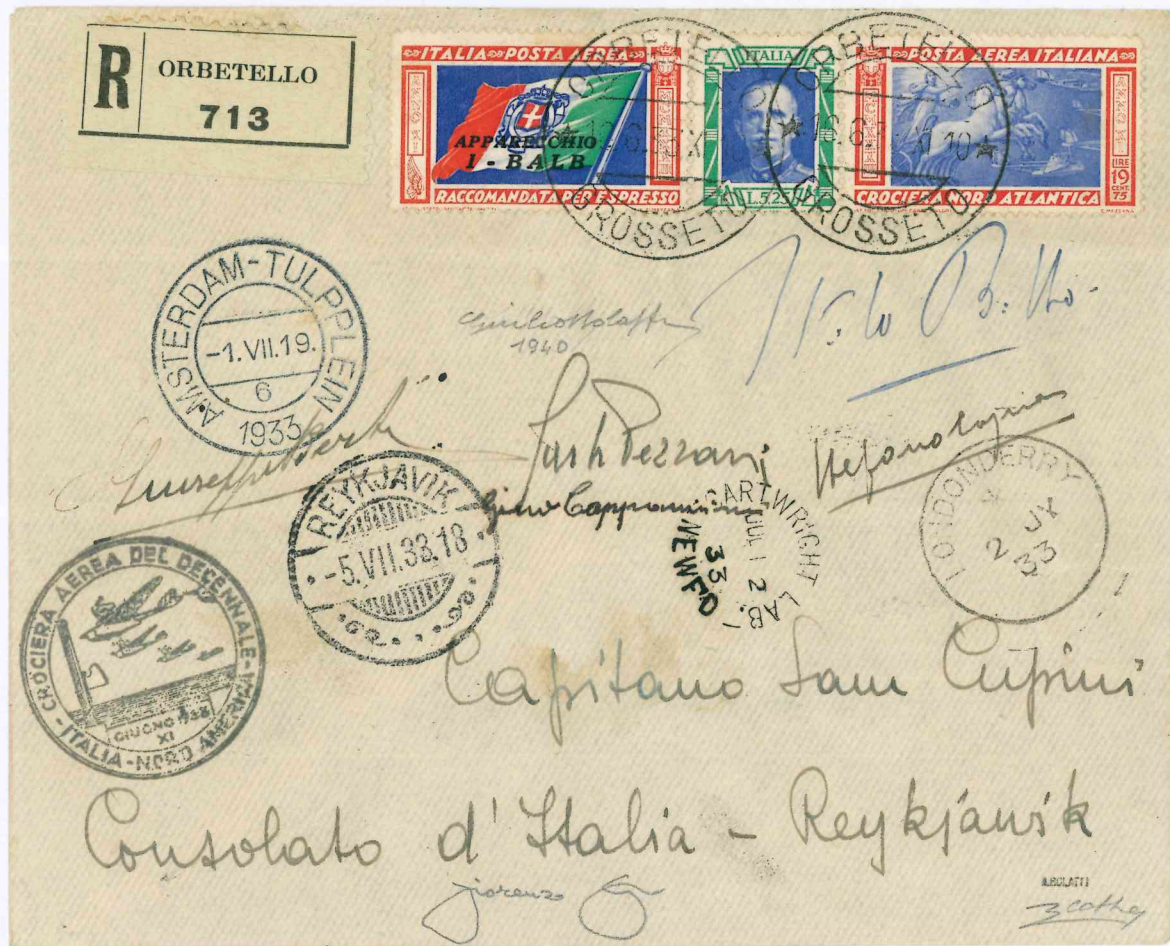 R ORBETELLO
713
ITALIA-POSTA AEREA
APPARECCHIO
I-BALB
RACCOMANDATA PER ESPRESSO
ITALIA
L.5,25
POSTA AEREA ITALIANA
LIRE
19
CENT.
75
CROCIERA NORD ATLANTICA
ORBETELLO
GROSSETO
ORBETELLO
10
GROSSETO
AMSTERDAM-TULPPLEIN
-1.VII.19.
6
1933
1940
REYKJAVIK
-5.VII.33.18
CARTWRIGHT LAB.
JUL 12
33
NEWFD
LONDONDERRY
2 JY
33
CROCIERA AEREA DEL DECENNALE
GIUGNO 1933
XI
ITALIA-NORD AMERICA
Capitano Sam Cupini
Consolato d'Italia - Reykjavik